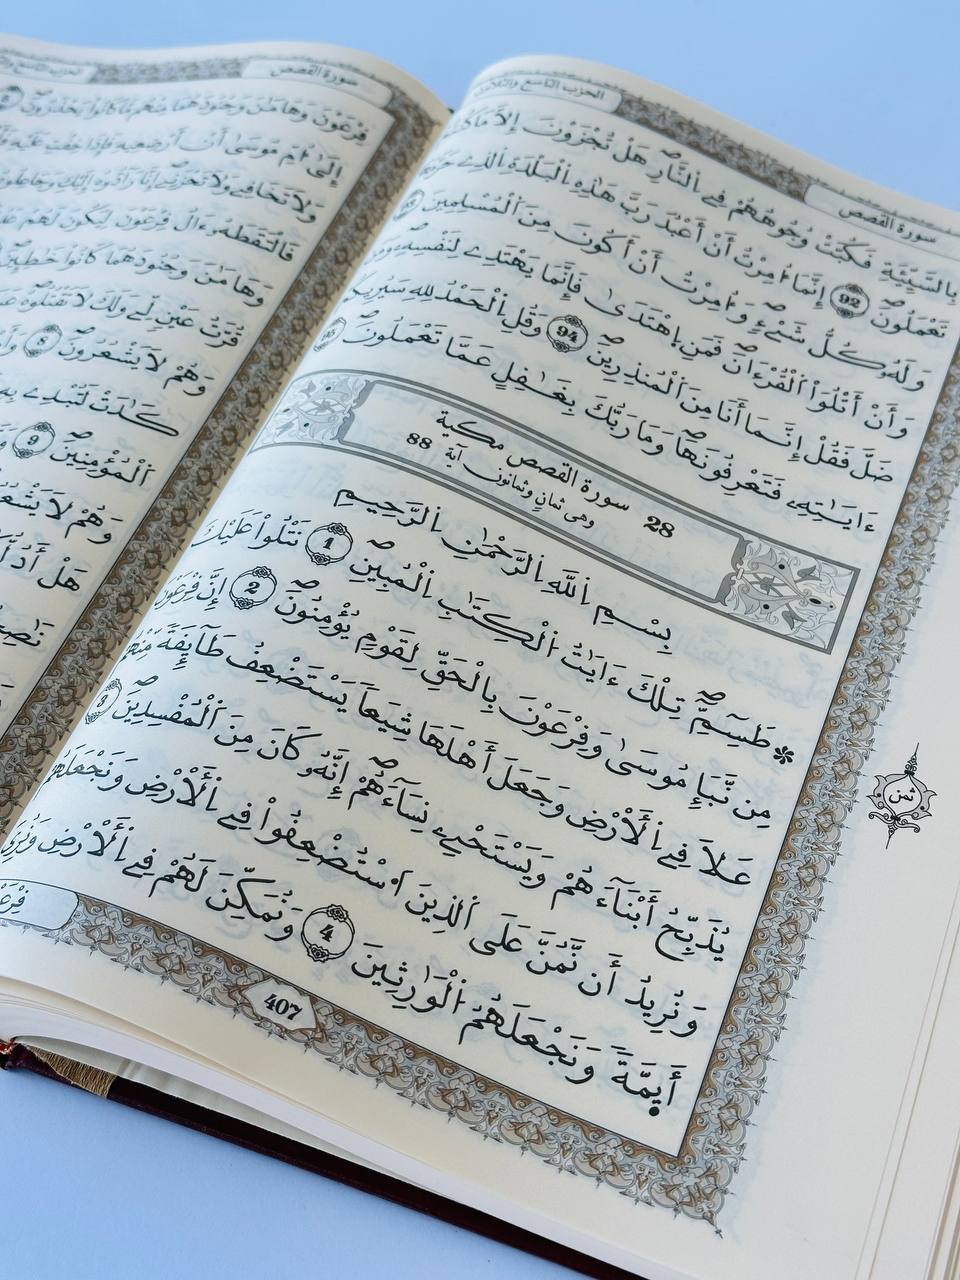 الحزب التاسع والثلاثون
سورة القصص
بِالسَّيِّئَةِ فَكُبَّتْ وُجُوهُهُمْ فِے اِلنَّارِۖ هَلْ تُجْزَوْنَ إِلاَّ مَا كُنتُمْ
تَعْمَلُونَۖ 92 إِنَّمَا أُمِرْتُ أَنْ أَعْبُدَ رَبَّ هَٰذِهِ اِلْبَلْدَةِ اِلذِے حَرَّمَهَا
وَلَهُۥ كُلُّ شَےْءٖۖ وَأُمِرْتُ أَنْ أَكُونَ مِنَ اَلْمُسْلِمِينَ 93
وَأَنْ أَتْلُوَاْ اَلْقُرْءَانَۖ فَمَنِ اِهْتَدَىٰ فَإِنَّمَا يَهْتَدِے لِنَفْسِهِۦۖ وَمَن
ضَلَّ فَقُلْ إِنَّمَا أَنَا مِنَ اَلْمُنذِرِينَۖ 94 وَقُلِ اِلْحَمْدُ لِلهِ سَيُرِيكُمُۥٓ
ءَايَٰتِهِۦ فَتَعْرِفُونَهَاۖ وَمَا رَبُّكَ بِغَٰفِلٍ عَمَّا تَعْمَلُونَۖ 95
28 سورة القصص مكية
وهى ثمانٍ وثمانون آية 88
بِسْمِ اِللَّهِ اِلرَّحْمَٰنِ اِلرَّحِيمِ
طَسِٓمِّٓۖ تِلْكَ ءَايَٰتُ اُلْكِتَٰبِ اِلْمُبِينِۖ 1 نَتْلُواْ عَلَيْكَ
مِن نَّبَإِ مُوسَىٰ وَفِرْعَوْنَ بِالْحَقِّ لِقَوْمٍ يُؤْمِنُونَۖ 2 إِنَّ فِرْعَوْنَ
عَلاَ فِے اِلْأَرْضِ وَجَعَلَ أَهْلَهَا شِيَعاً يَسْتَضْعِفُ طَآئِفَةً مِّنْهُمْ
يُذَبِّحُ أَبْنَآءَهُمْ وَيَسْتَحْيِے نِسَآءَهُمْۖ إِنَّهُۥ كَانَ مِنَ اَلْمُفْسِدِينَۖ 3
وَنُرِيدُ أَن نَّمُنَّ عَلَى اَلذِينَ اَسْتُضْعِفُواْ فِے اِلْأَرْضِ وَنَجْعَلَهُمُۥٓ
أَئِمَّةً وَنَجْعَلَهُمُ اُلْوَٰرِثِينَ 4 وَنُمَكِّنَ لَهُمْ فِے اِلْأَرْضِ وَنُرِيَ
407
ثمن
سورة القصص
فِرْعَوْنَ وَهَٰمَٰنَ وَجُنُودَهُمَا مِنْهُم مَّا كَانُواْ يَحْذَرُونَۖ
إِلَىٰ أُمِّ مُوسَىٰ أَنْ أَرْضِعِيهِۖ فَإِذَا خِفْتِ عَلَيْهِ
وَلاَ تَخَافِے وَلاَ تَحْزَنِےۖ إِنَّا رَآدُّوهُ إِلَيْكِ وَجَاعِلُوهُ
فَالْتَقَطَهُۥٓ ءَالُ فِرْعَوْنَ لِيَكُونَ لَهُمْ
وَهَامَٰنَ وَجُنُودَهُمَا كَانُواْ خَٰطِـِٕينَ
قُرَّتُ عَيْنٍ لِّے وَلَكَ لاَ تَقْتُلُوهُ
وَهُمْ لاَ يَشْعُرُونَۖ 8
كَادَتْ لَتُبْدِے بِهِۦ
اَلْمُؤْمِنِينَۖ 9
وَهُمْ لاَ يَشْعُرُونَ
هَلْ أَدُلُّ